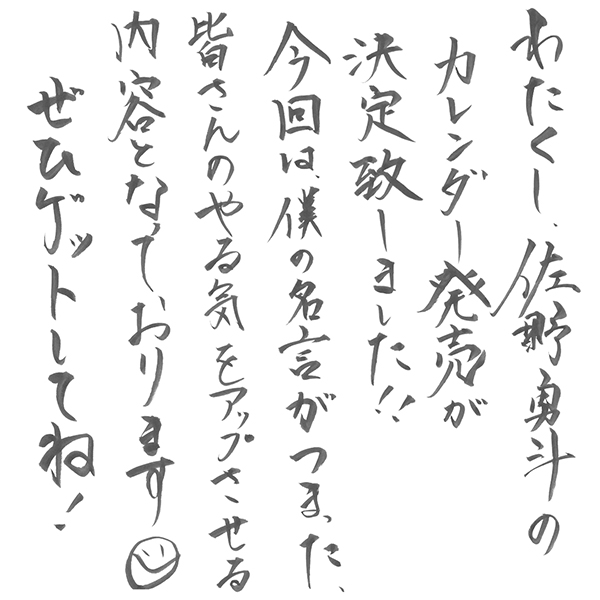 わたくし、佐野勇斗の
カレンダー発売が
決定致しました!!
今回は、僕の名言がつまった、
皆さんのやる気をアップさせる
内容となっております
ぜひゲットしてね!